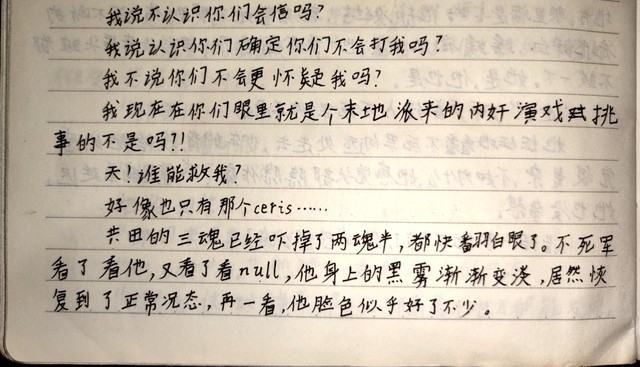 我说不认识你们会信吗?
我说认识你们确定你们不会打我吗?
我不说你们不会更怀疑我吗?
我现在在你们眼里就是个末地派来的内奸演戏挑
事的不是吗?!
天!谁能救我?
好像也只有那个ceris……
共田的三魂已经吓掉了两魂半,都快翻白眼了。不死军
看了看他,又看了看null,他身上的黑雾渐渐变淡,居然恢
复到了正常况态,再一看,他脸色似乎好了不少。